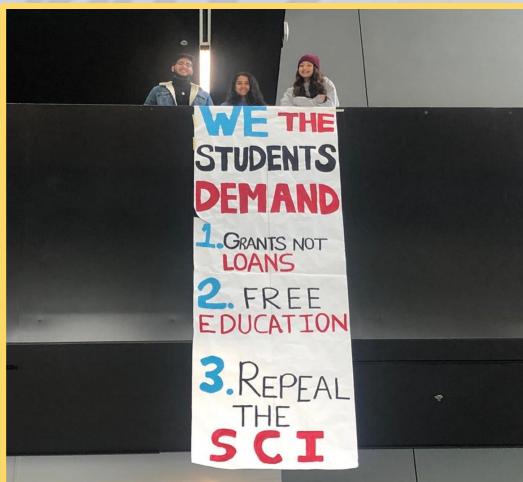 WE THE
STUDENTS
DEMAND
1. GRANTS NOT
LOANS
2. FREE
EDUCATION
3. REPEAL
THE
SCI